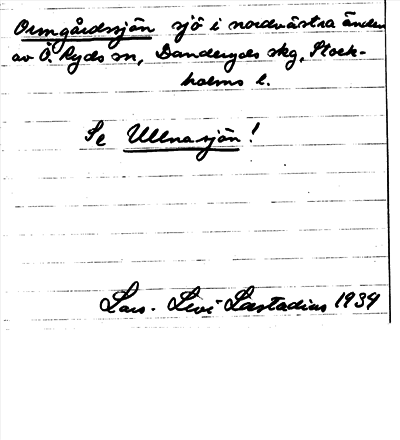 Ormgårdssjön sjö i nordvästra änden
av Ö. Ryds sn, Danderyds skg, Stock-
holms l.
Se Ullnasjön!
Lars-Levi Læstadius 1934